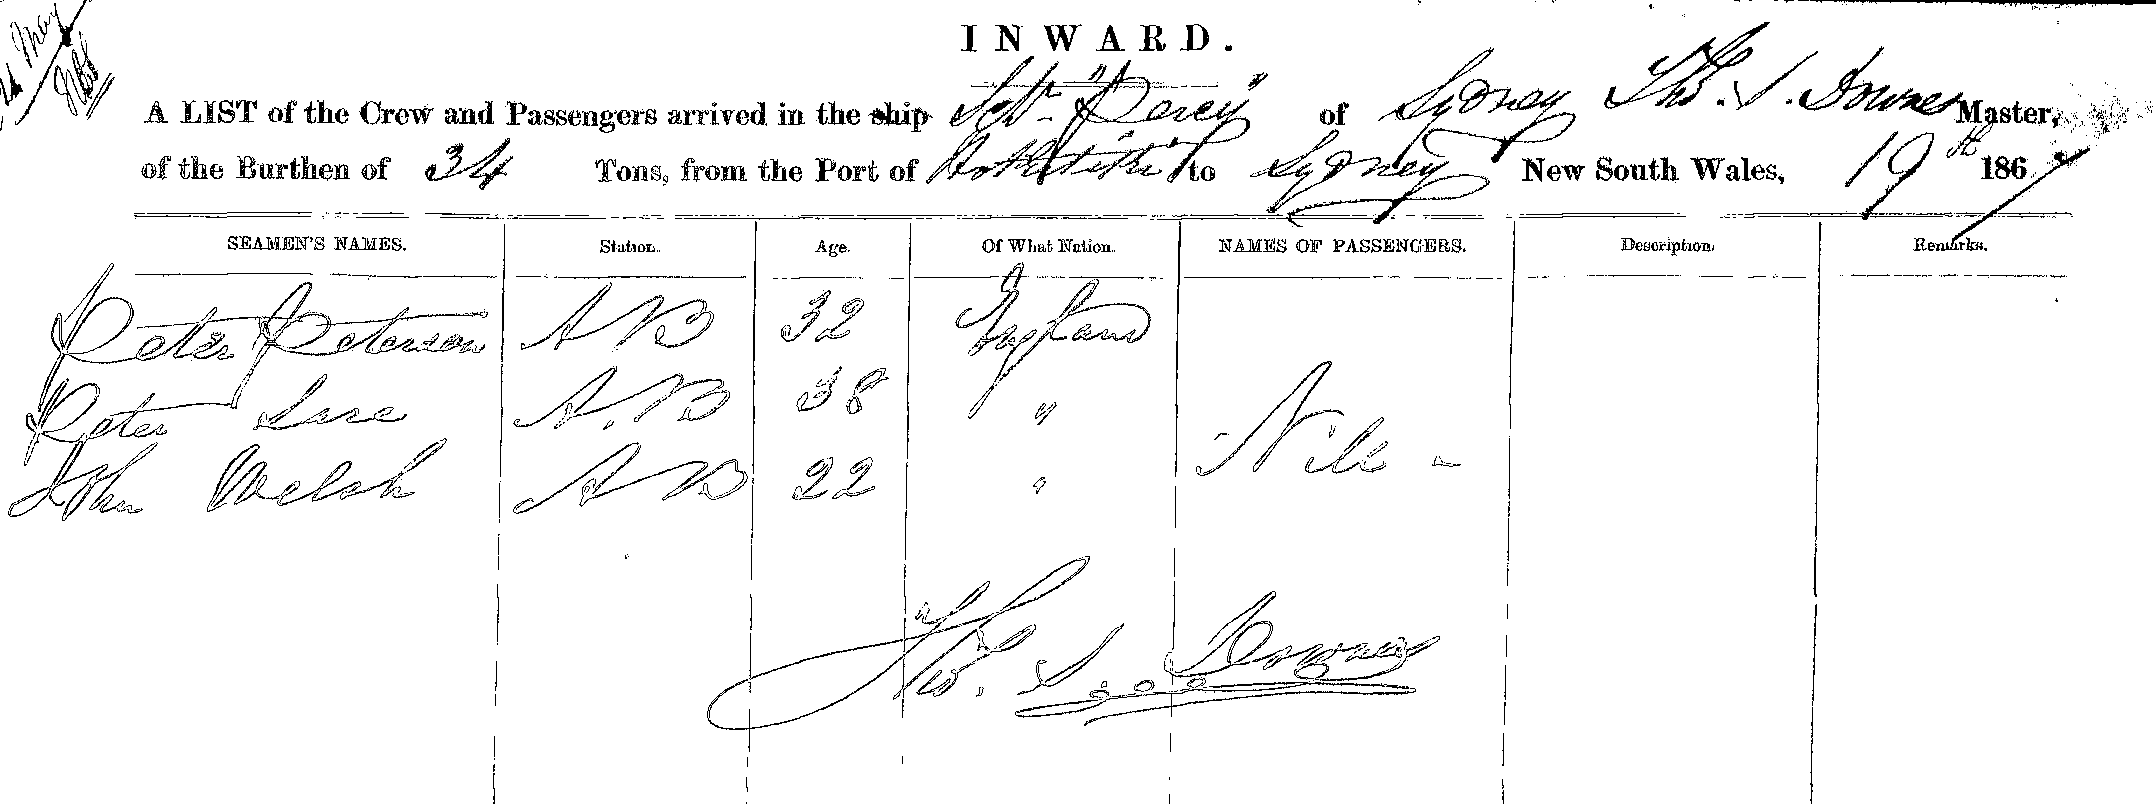 May
INWARD.
A LIST of the Crew and Passengers arrived in the ship Schr "Percy" of Sydney Thos. S. Downes Master,
of the Burthen of 34 Tons, from the Port of Hokitiki to Sydney New South Wales, 19th 1867
SEAMEN'S NAMES. Station. Age. Of What Nation. NAMES OF PASSENGERS. Description. Remarks.
Peter Peterson A B 32 England
Peter A. B 38 "
John Welsh A B 22 " Nill -
Thos. S. Downes